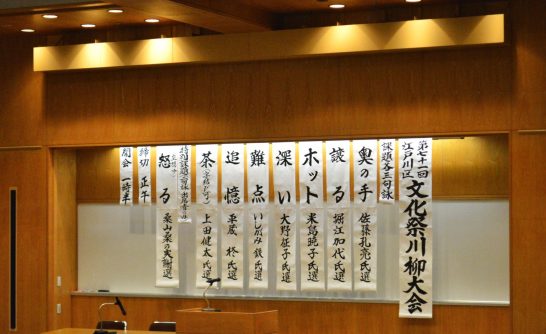 第七十一回
江戸川区
文化祭川柳大会
課題各三句詠
奥の手 佐藤孔亮氏選
譲る 堀江加代氏選
ホット 米島暁子氏選
深い 大野征子氏選
難点 いしがみ鉄氏選
追憶 平蔵柊氏選
茶 上田健太氏選
怒る
締切 正午
開会 一時半